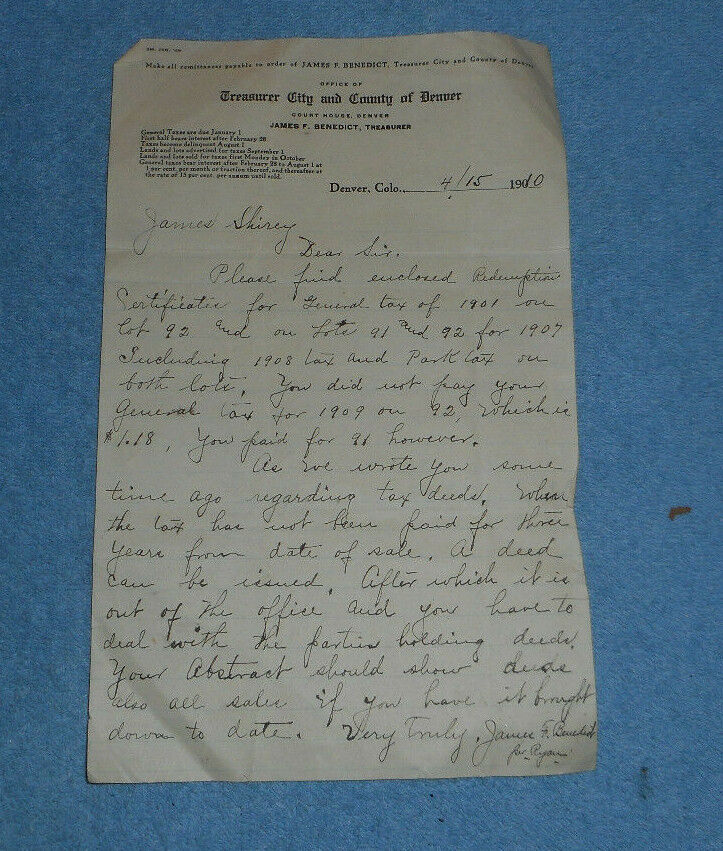 Make all remittances payable to order of JAMES F. BENEDICT, Treasurer City and County of Denver
OFFICE OF
Treasurer City and County of Denver
COURT HOUSE, DENVER
JAMES F. BENEDICT, TREASURER
General Taxes are due January 1
First half bears interest after February 28
Taxes become delinquent August 1
Lands and lots advertised for taxes September 1
Lands and lots sold for taxes first Monday in October
General taxes bear interest after February 28 to August 1 at
1 per cent. per month or fraction thereof, and thereafter at
the rate of 15 per cent. per annum until sold.
Denver, Colo., 4/15 1910
James Shirey
Dear Sir.
Please find enclosed Redemption
Certificates for General tax of 1901 on
Lot 92 and on Lots 91 and 92 for 1907
Including 1908 tax and Park tax on
both lots. You did not pay your
General tax for 1909 on 92, which is
$1.18, You paid for 91 however.
As we wrote you some
time ago regarding tax deeds. When
the tax has not been paid for three
years from date of sale. A deed
can be issued. After which it is
out of the office and you have to
deal with the parties holding deeds.
Your Abstract should show deeds
also all sales if you have it brought
down to date. Very Truly, James F. Benedict
per Ryan